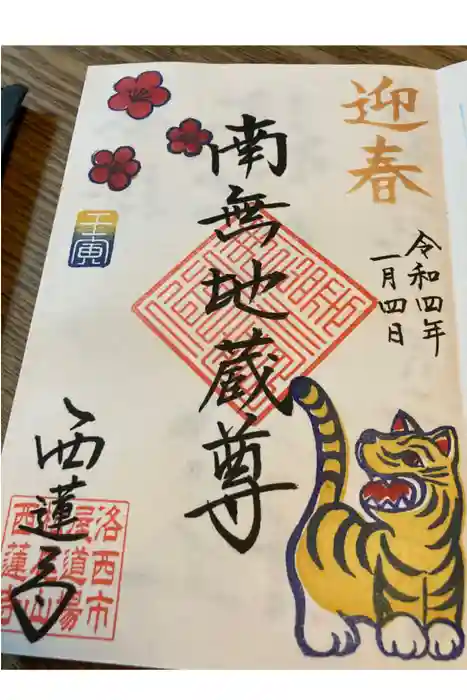 迎春
令和四年
一月四日
南無地蔵尊
壬寅
西蓮寺
洛西市
屋道場
山
西蓮寺